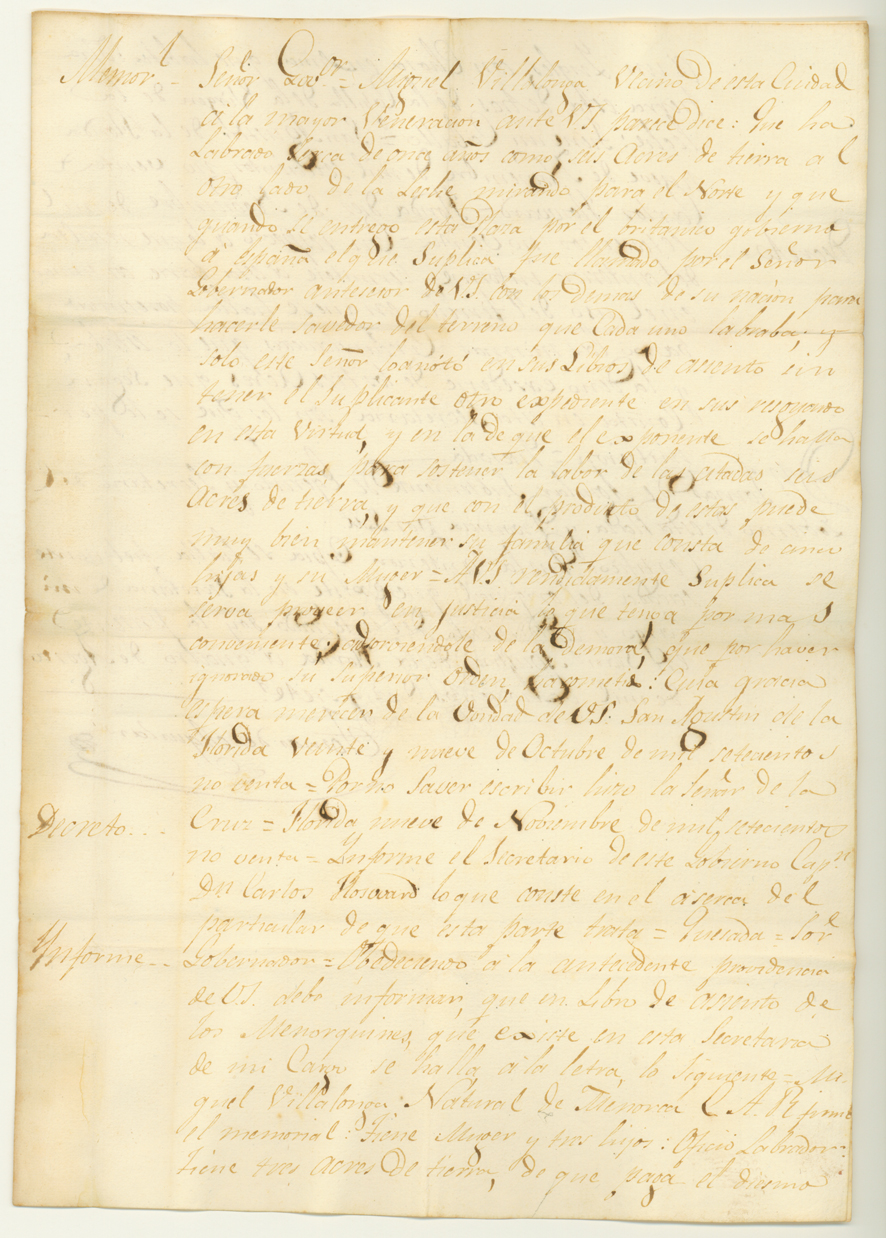 Memor.l Señor Gov.or = Miguel Villalonga Vecino de esta Ciudad
a la mayor Veneracion ante VS. parece dice: Que ha
Labrado serca de once años como seis Acres de tierra al
otro lado de la Leche mirando para el Norte y que
quando se entrego esta Plaza por el britanico gobierno
á España el que Suplica fue llamado por el Señor
Gobernador antesesor de VS. con los demas de su nacion para
hacerle savedor del terreno que Cada uno labraba, y
solo este Señor lo anotó en sus Libros de asiento sin
tener el Suplicante otro expediente en sus resguardo
en esta Virtud, y en la de que el exponente se halla
con fuerzas para sostener la labor de las citadas seis
Acres de tierra, y que con el producto de estas puede
muy bien mantener su familia que consta de cinco
hijas y su Muger = A VS. rendidamente Suplica se
serva proveer en justicia lo que tenga por mas
conveniente, de la Demora, que por haver
ignorado su superior orden, ha cometido: Cuia gracia
espera merecer de la Vondad de VS. San Agustin de la
Florida Veinte y nueve de Octubre de mil setecientos
noventa = Por no Saver escribir hizo la Señar de la
Decreto... Cruz = Florida nueve de Nobiembre de mil setecientos
noventa = Ynforme el Secretario de este Gobierno Cap.n
Dn Carlos Howard lo que conste en el aserca del
particular de que esta parte trata = Quesada = Sor
Ynforme.. Gobernador = Obedeciendo a la antecedente providencia
de VS. debo informar, que en Libro de asiento de
los Menorquines, que existe en esta Secretaria
de mi Cargo se halla a la letra, lo siguiente = Mi-
guel Villalonga: Natural de Menorca C. A. R. firmó
el memorial: Tiene Muger y tres hijos: Oficio Labrador:
Tiene tres acres de tierra, de que paga el diesmo